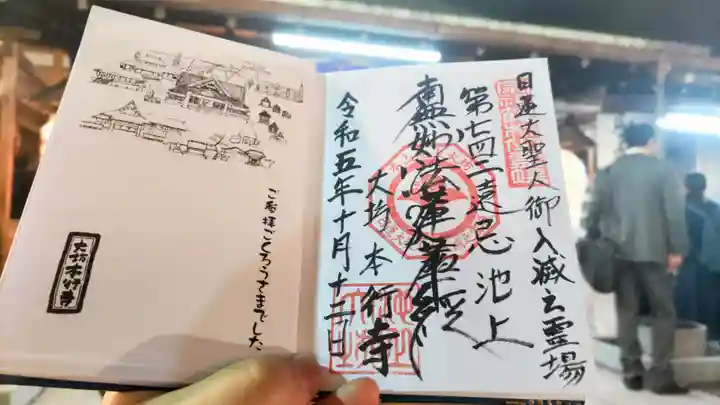 日蓮大聖人御入滅之霊場
第七四二遠忌池上
南無妙法蓮華経
大坊本行寺
令和五年十月十二日
ご参拝ごくろうさまでした
大坊本行寺